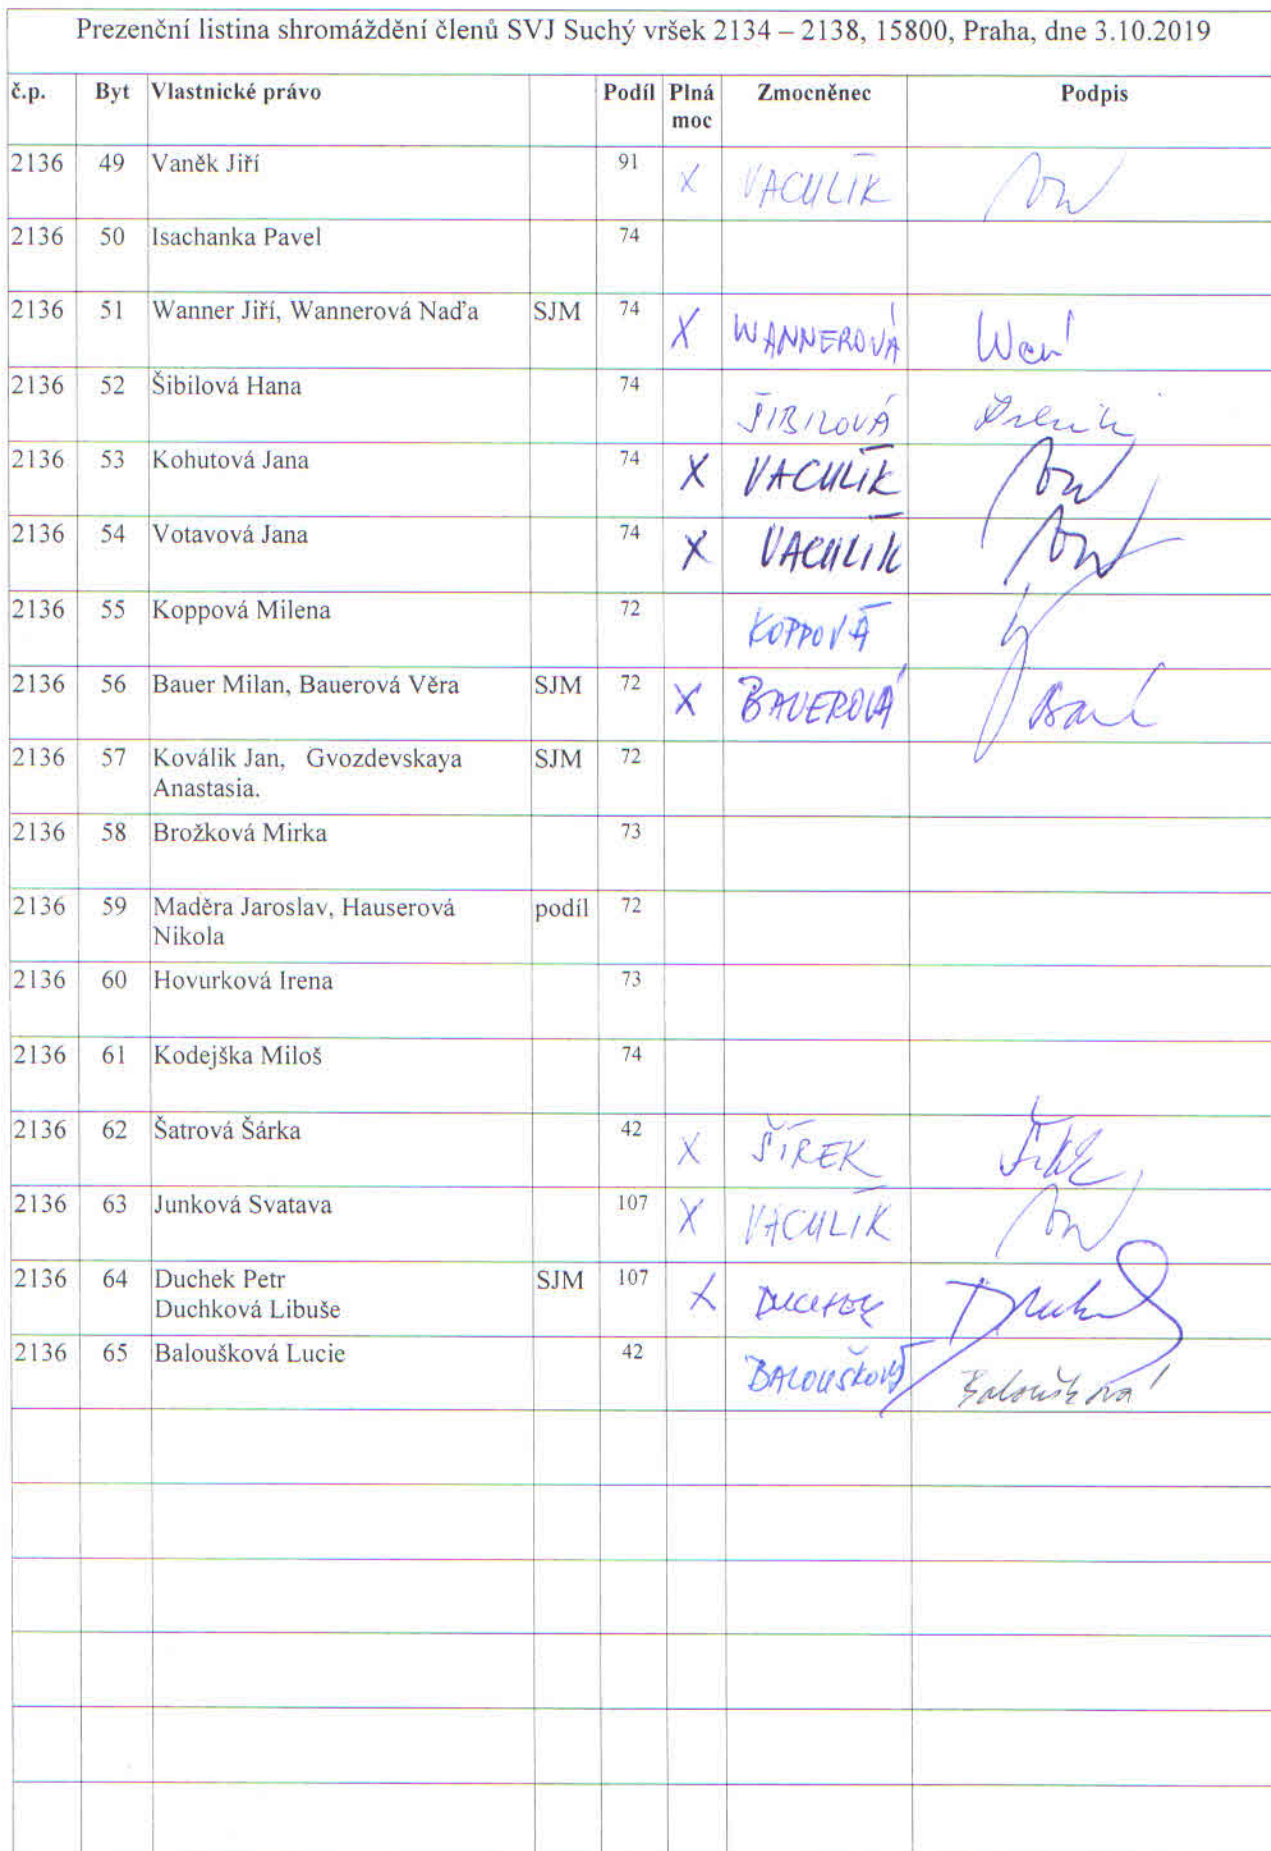 Prezenční listina shromáždění členů SVJ Suchý vršek 2134 – 2138, 15800, Praha, dne 3.10.2019
č.p. Byt Vlastnické právo Podíl Plná moc Zmocněnec Podpis
2136 49 Vaněk Jiří 91 X VACULÍK
2136 50 Isachanka Pavel 74
2136 51 Wanner Jiří, Wannerová Naďa SJM 74 X WANNEROVÁ
2136 52 Šibilová Hana 74 ŠIBILOVÁ
2136 53 Kohutová Jana 74 X VACULÍK
2136 54 Votavová Jana 74 X VACULÍK
2136 55 Koppová Milena 72 KOPPOVÁ
2136 56 Bauer Milan, Bauerová Věra SJM 72 X BAUEROVÁ
2136 57 Koválik Jan, Gvozdevskaya SJM 72
Anastasia.
2136 58 Brožková Mirka 73
2136 59 Maděra Jaroslav, Hauserová podíl 72
Nikola
2136 60 Hovurková Irena 73
2136 61 Kodejška Miloš 74
2136 62 Šatrová Šárka 42 X ŠÍREK
2136 63 Junková Svatava 107 X VACULÍK
2136 64 Duchek Petr SJM 107 X DUCHEK
Duchková Libuše
2136 65 Baloušková Lucie 42 BALOUŠKOVÁ Baloušková